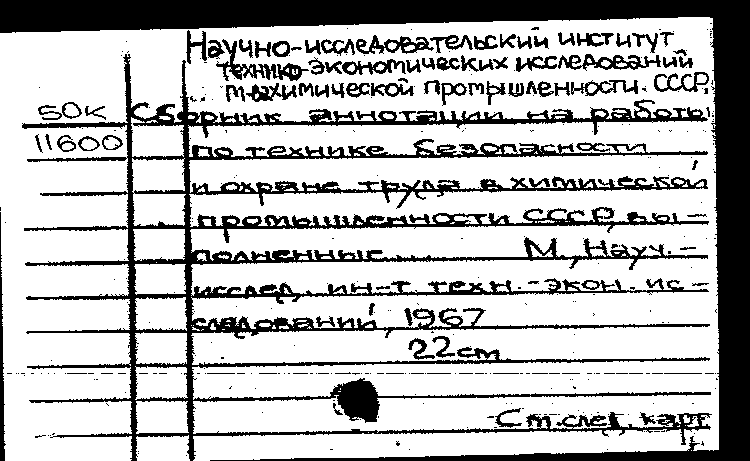 Научно-исследовательский институт
технико-экономических исследований
м-ва химической промышленности. СССР,
50К Сборник аннотаций на работы
11600 по технике безопасности
и охране труда в химической
промышленности СССР, вы-
полненные... М., Науч.-
исслед. ин-т техн.-экон. ис-
следований, 1967
22 cm
Cm. след. карт